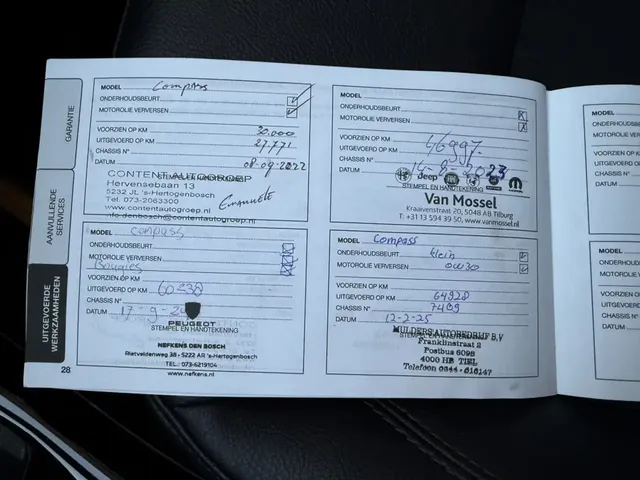 GARANTIE
AANVULLENDE
SERVICES
UITGEVOERDE
WERKZAAMHEDEN
28
MODEL Compass
ONDERHOUDSBEURT
MOTOROLIE VERVERSEN
VOORZIEN OP KM 30.000
UITGEVOERD OP KM 27.771
CHASSIS N°
DATUM 08-09-2022
CONTENT AUTOGROEP
STEMPEL EN HANDTEKENING
Hervensebaan 13
5232 JL 's-Hertogenbosch
Tel. 073-2063300
www.contentautogroep.nl
info.denbosch@contentautogroep.nl
MODEL
ONDERHOUDSBEURT
MOTOROLIE VERVERSEN
VOORZIEN OP KM
UITGEVOERD OP KM 46997
CHASSIS N°
DATUM 16-8-2023
Jeep
STEMPEL EN HANDTEKENING
Van Mossel
Kraaivenstraat 20, 5048 AB Tilburg
T: +31 13 594 39 50, www.vanmossel.nl
MODEL compass
ONDERHOUDSBEURT
MOTOROLIE VERVERSEN
Bougies
VOORZIEN OP KM
UITGEVOERD OP KM 60238
CHASSIS N°
DATUM 17-9-24
PEUGEOT
STEMPEL EN HANDTEKENING
NEFKENS DEN BOSCH
Rietveldenweg 38 - 5222 AR 's-Hertogenbosch
TEL.: 073-6219104
www.nefkens.nl
MODEL Compass
ONDERHOUDSBEURT klein
MOTOROLIE VERVERSEN 0W30
VOORZIEN OP KM
UITGEVOERD OP KM 64928
CHASSIS N° 7469
DATUM 12-2-25
MULDERS AUTOBEDRIJF B.V
STEMPEL EN HANDTEKENING
Franklinstraat 2
Postbus 6098
4000 HB TIEL
Telefoon 0344 - 616147
MODEL
ONDERHOUDSBEU
MOTOROLIE VER
VOORZIEN OP K
UITGEVOERD O
CHASSIS N°
DATUM
MODEL
ONDERHOUDS
MOTOROLIE
VOORZIEN O
UITGEVOER
CHASSIS N
DATUM